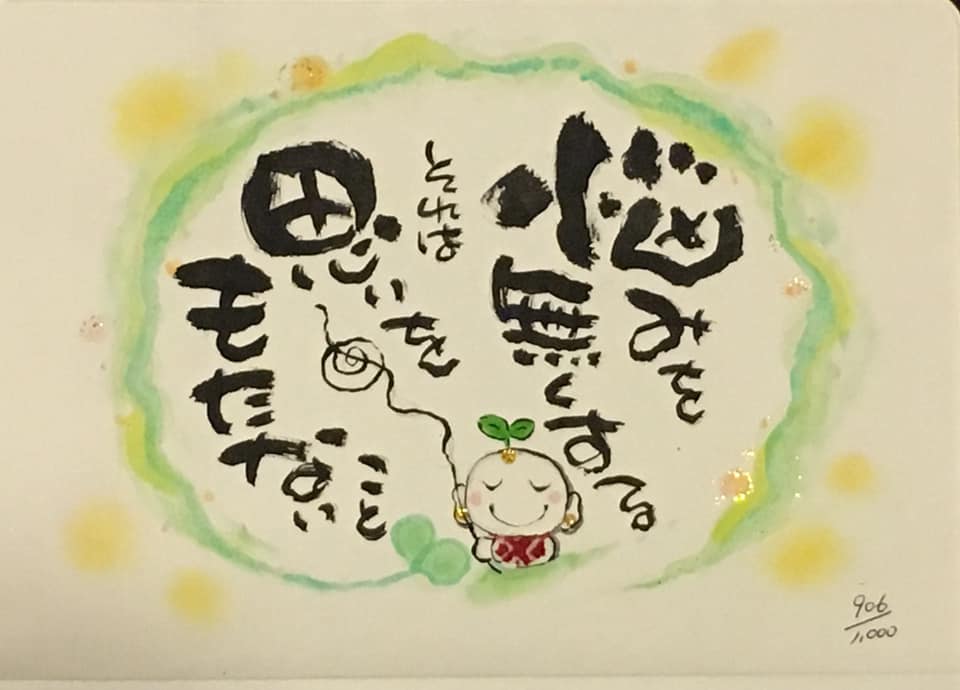 悩みを
無くする
それは
思いを
もたない
こと
906
1,000